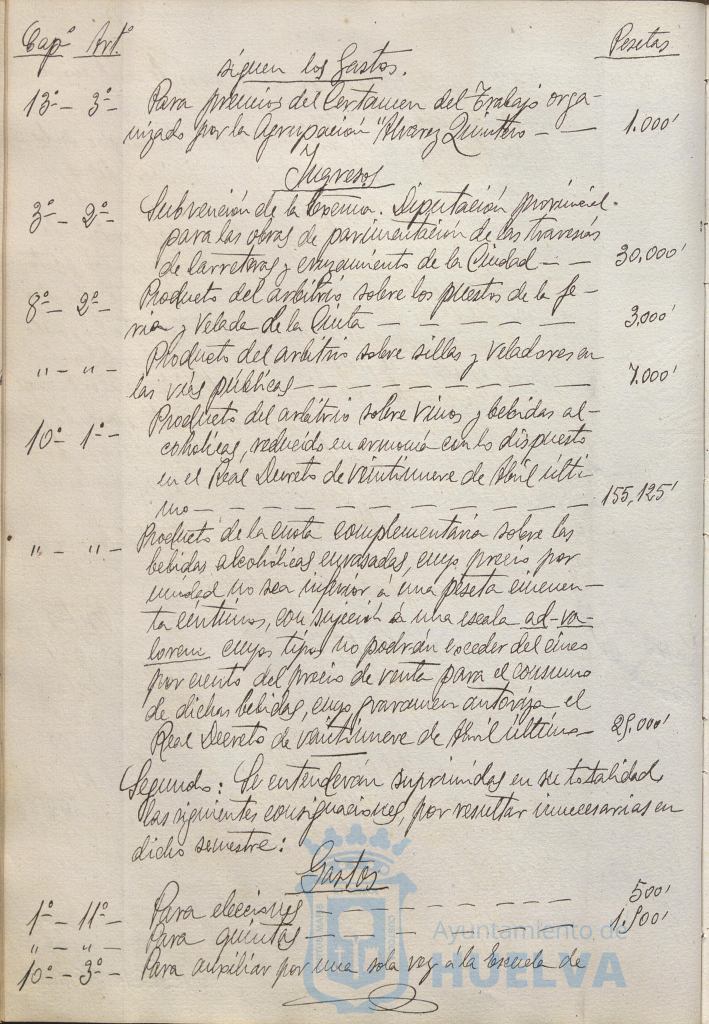 Cap.º Art.º Pesetas
siguen los Gastos.
13º - 3º - Para premios del Certamen del Trabajo orga-
nizado por la Agrupación "Alvarez Quintero - - 1.000'
Ingresos
3º - 2º - Subvención de la Excma. Diputación provincial.
para las obras de pavimentación de las travesías
de carreteras y enrzamiento de la Ciudad - - 30,000'
8º - 2º - Producto del arbitrio sobre los puestos de la fe-
ria y Velada de la Cinta - - - - - - 3,000'
" - " - Producto del arbitrio sobre sillas y veladores en
las vías públicas - - - - - - - - - 7.000'
10º - 1º - Producto del arbitrio sobre vinos y bebidas al-
cohólicas, reducido en armonía con lo dispuesto
en el Real Decreto de veintinueve de Abril últi
mo - - - - - - - - - - - - 155,125'
" - " - Producto de la cuota complementaria sobre las
bebidas alcohólicas envasadas, cuyo precio por
unidad no sea inferior á una peseta cincuen-
ta céntimos, con sujeción á una escala ad-va-
lorem cuyos tipos no podrán exceder del cinco
por ciento del precio de venta para el consumo
de dichas bebidas, cuyo gravamen autoriza el
Real Decreto de veintinueve de Abril último - 25,000'
Segundo: Se entenderán suprimidas en su totalidad
las siguientes consignaciones, por resultar innecesarias en
dicho semestre:
Gastos
1º - 11º - Para elecciones - - - - - - - - 500'
" - " - Para quintas - - - - - - - - 1.500'
10º - 3º - Para auxiliar por una sola vez á la Escuela de
Ayuntamiento de
HUELVA